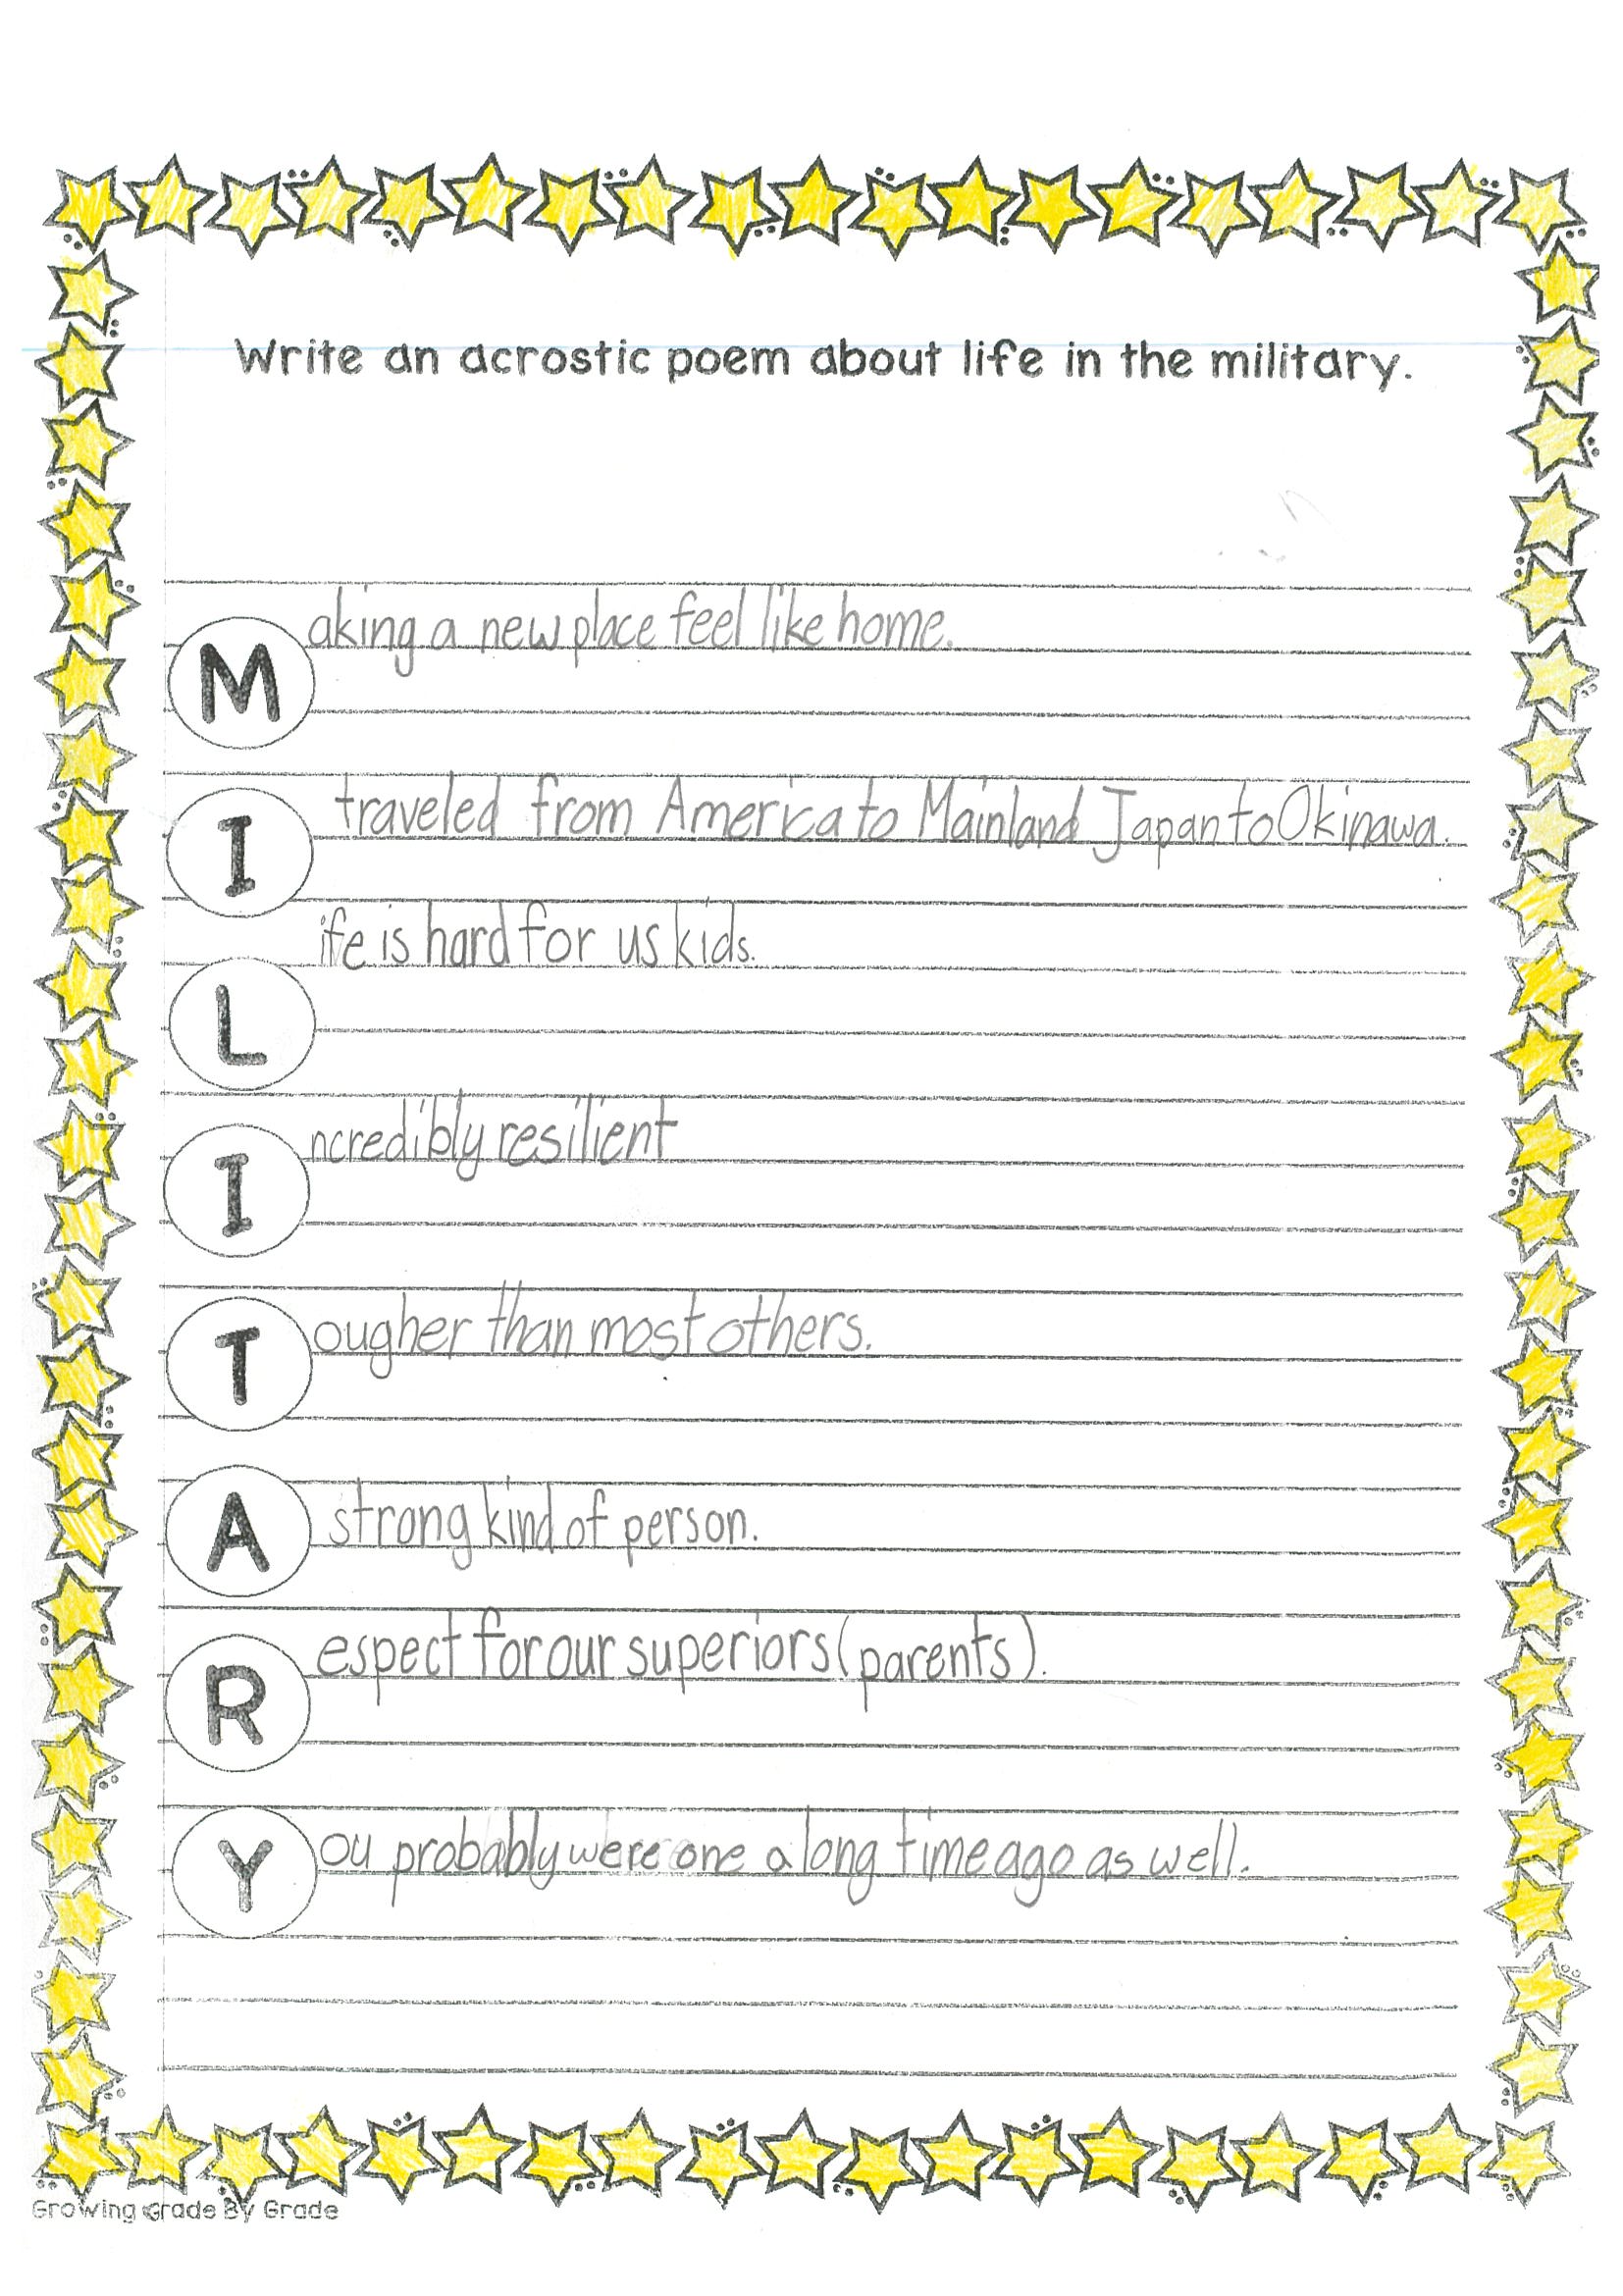 Write an acrostic poem about life in the military.
Making a new place feel like home.
I traveled from America to Mainland Japan to Okinawa.
Life is hard for us kids.
Incredibly resilient
Tougher than most others.
A strong kind of person.
Respect for our superiors (parents).
You probably were one a long time ago as well.
Growing Grade By Grade